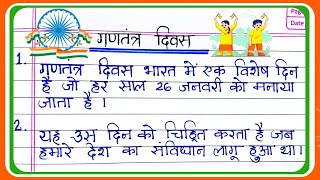 Pag
Date
गणतंत्र दिवस
1. गणतंत्र दिवस भारत में एक विशेष दिन
है जो हर साल 26 जनवरी को मनाया
जाता है ।
2. यह उस दिन को चिह्नित करता है जब
हमारे देश का संविधान लागू हुआ था।